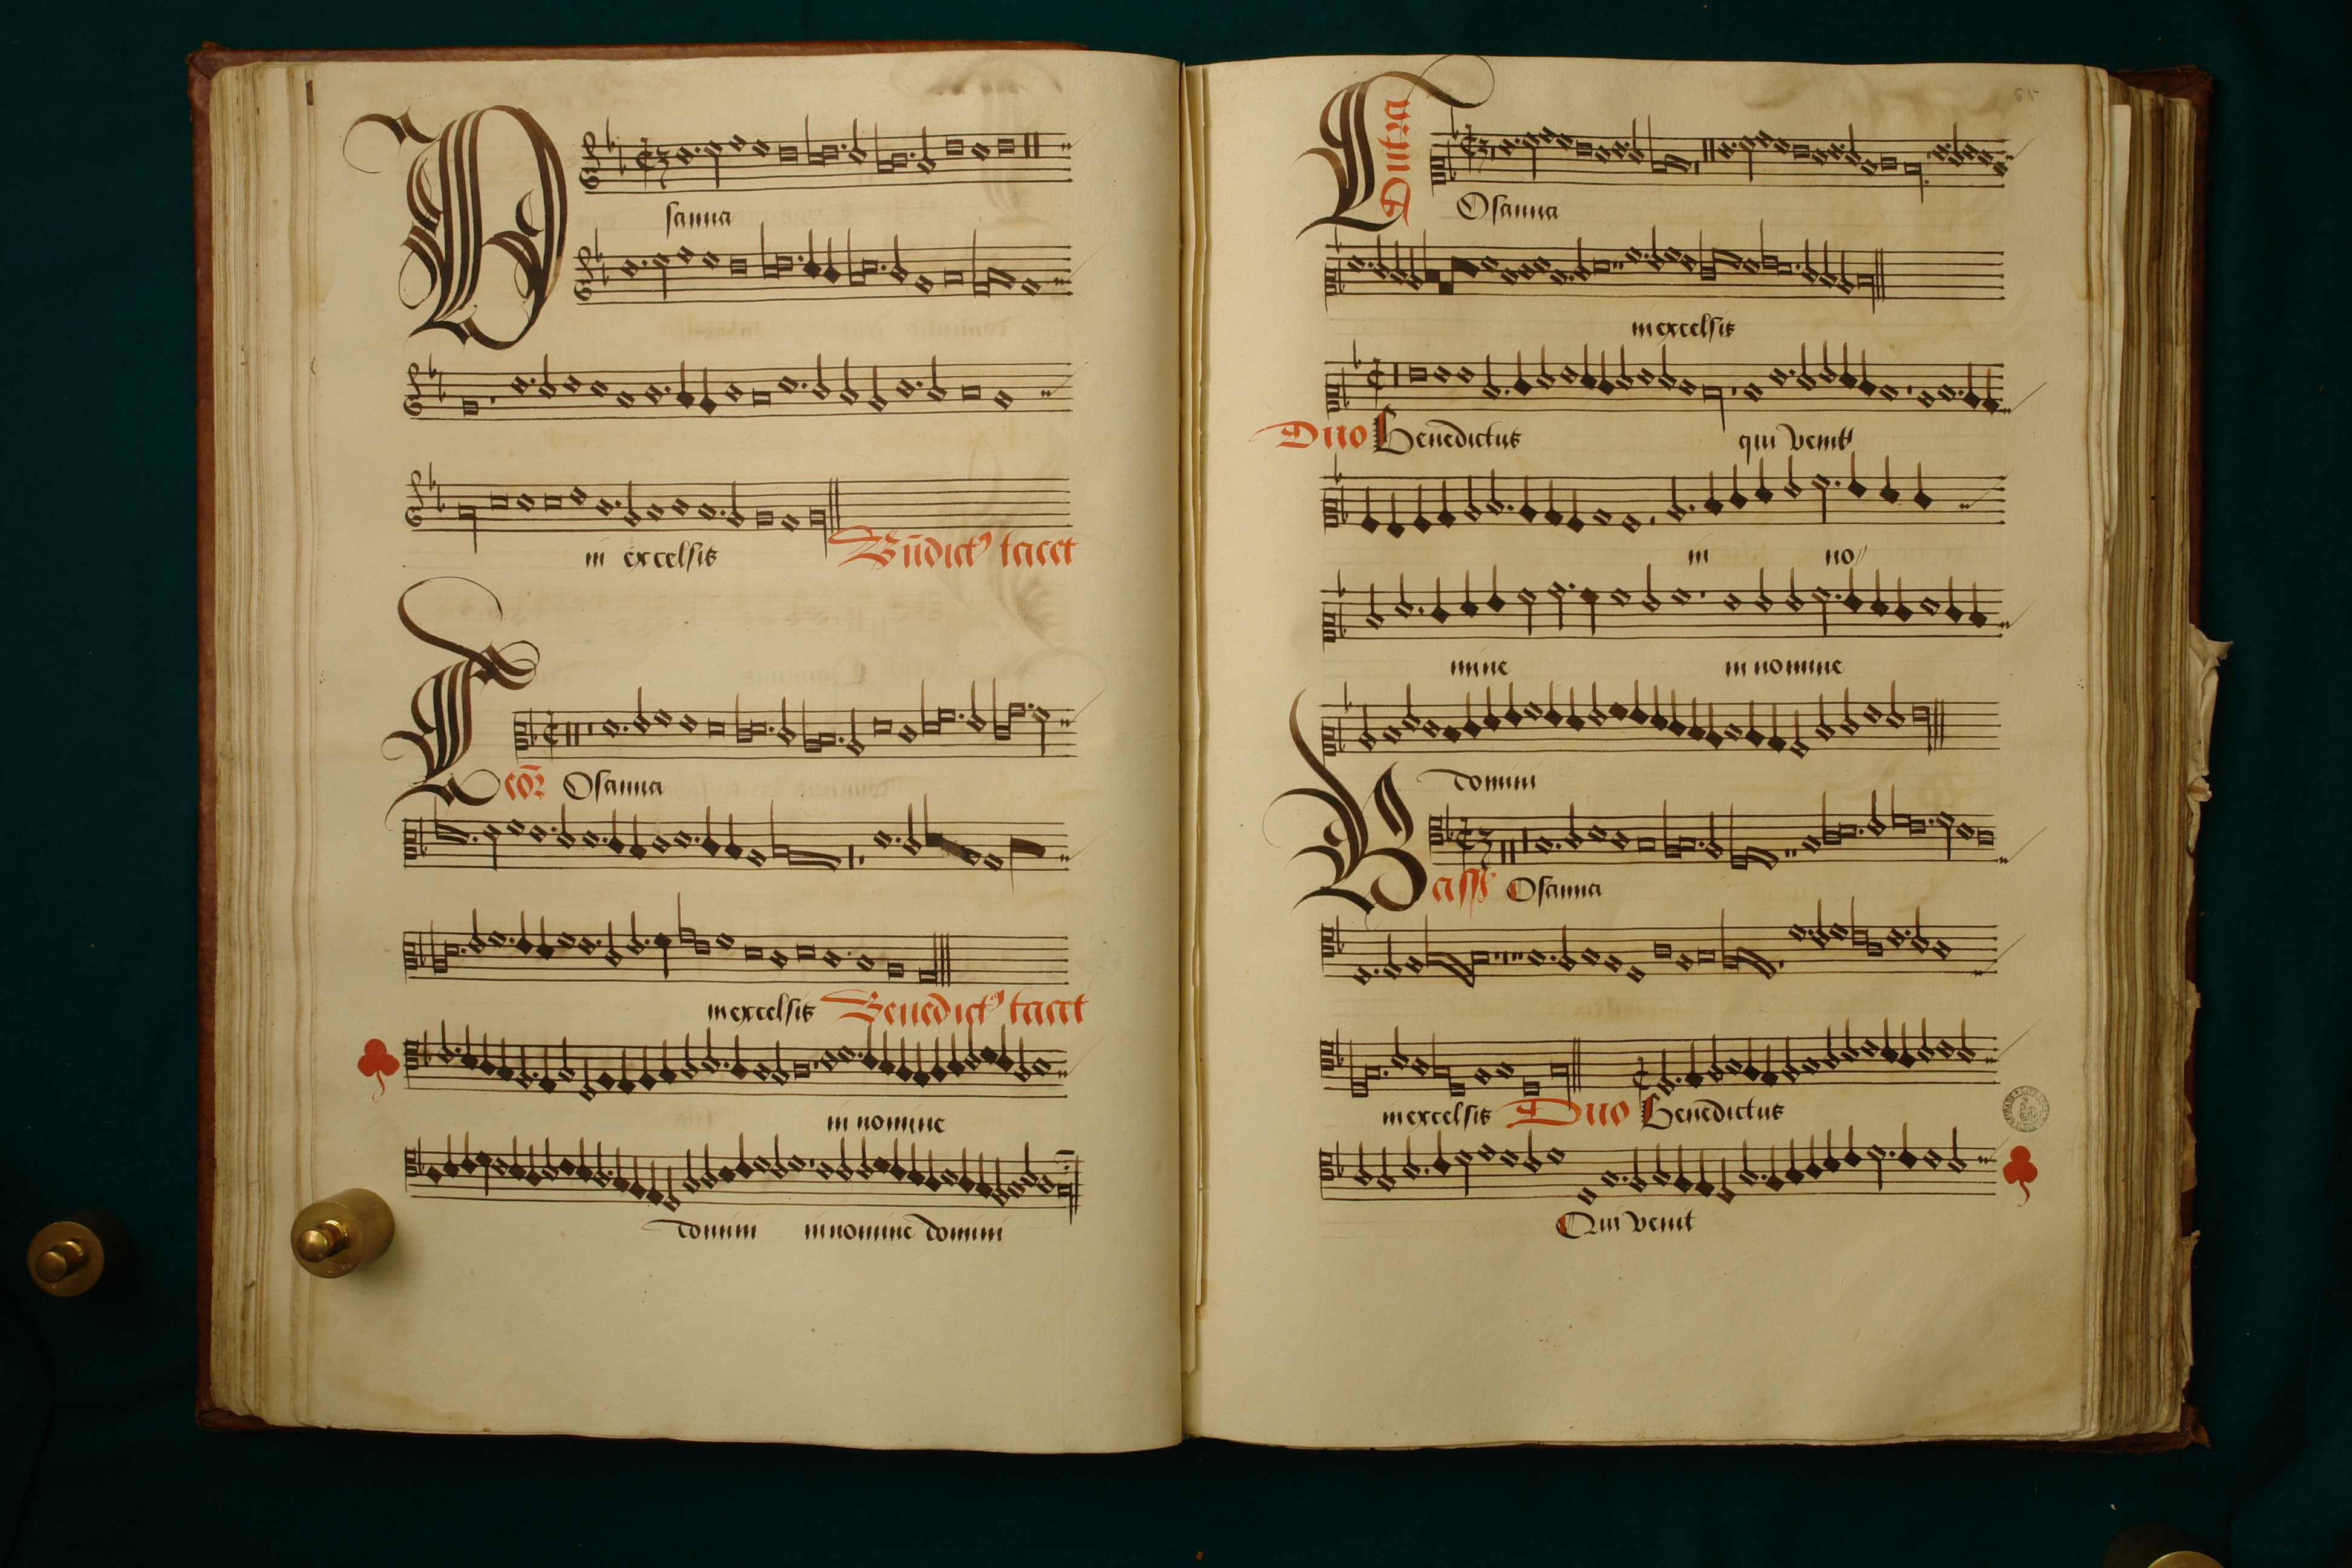 Osanna
in excelsis Bn̄dict⁹ tacet
Tenor Osanna
in excelsis Benedict⁹ tacet
in nomine
domini in nomine domini
Contra
Osanna
in excelsis
Duo Benedictus qui venit
in no//
mine in nomine
domini
Bass⁹ Osanna
in excelsis Duo Benedictus
Qui venit